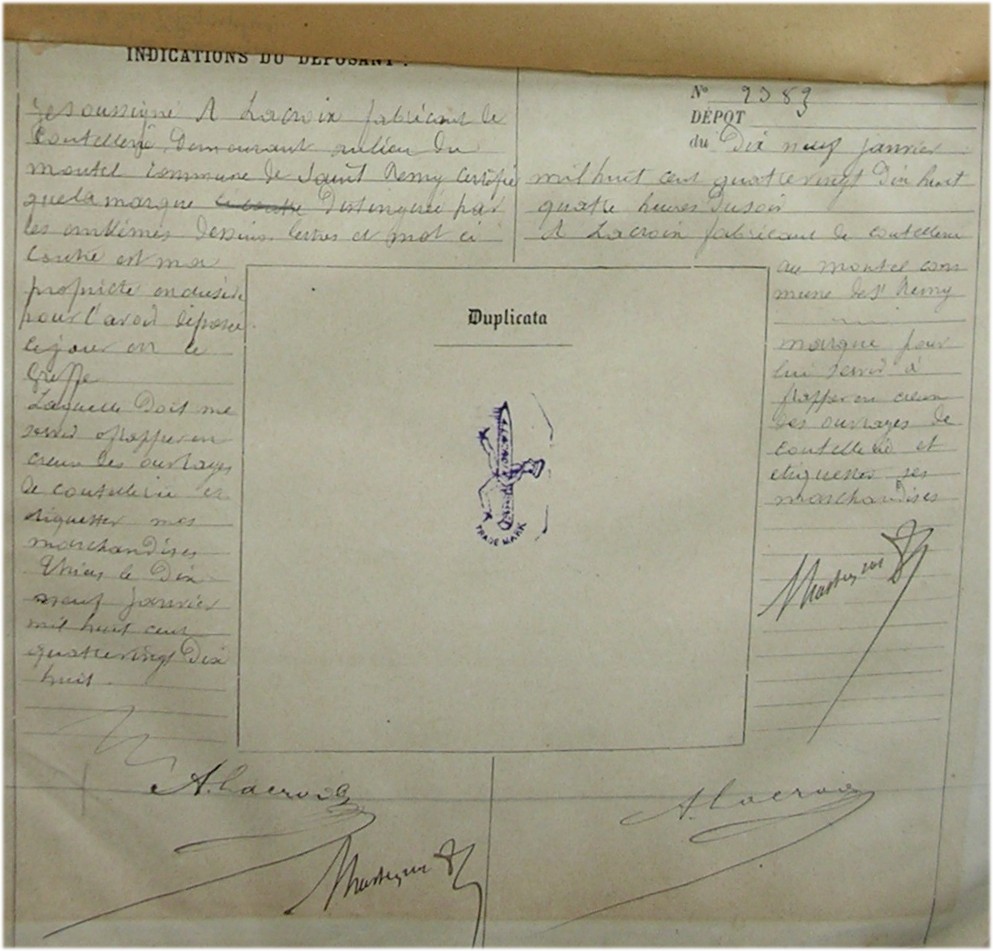 INDICATIONS DU DÉPOSANT :
Je soussigné A Lacroix fabricant de
Coutellerie Demeurant au lieu du
montel commune de Saint Remy certifie
que la marque Distinguée par
les emblèmes Dessins lettres et mot ci
contre est ma
propriété exclusive
pour l'avoir déposée
ce jour au
Greffe
Laquelle Doit me
servir à frapper en
creux les ouvrages
de coutellerie et
étiquetter mes
marchandises
Thiers le Dix
neuf janvier
mil huit cent
quatrevingt Dix
huit
N° 2383
DÉPOT
du Dix neuf janvier
mil huit cent quatrevingt Dix huit
quatre heures du soir
A Lacroix fabricant de coutellerie
au montel com
mune de St Remy
marque pour
lui servir à
frapper en creux
ses ouvrages de
coutellerie et
étiquetter ses
marchandises
Duplicata
TRADE MARK
A. Lacroix
A. Lacroix